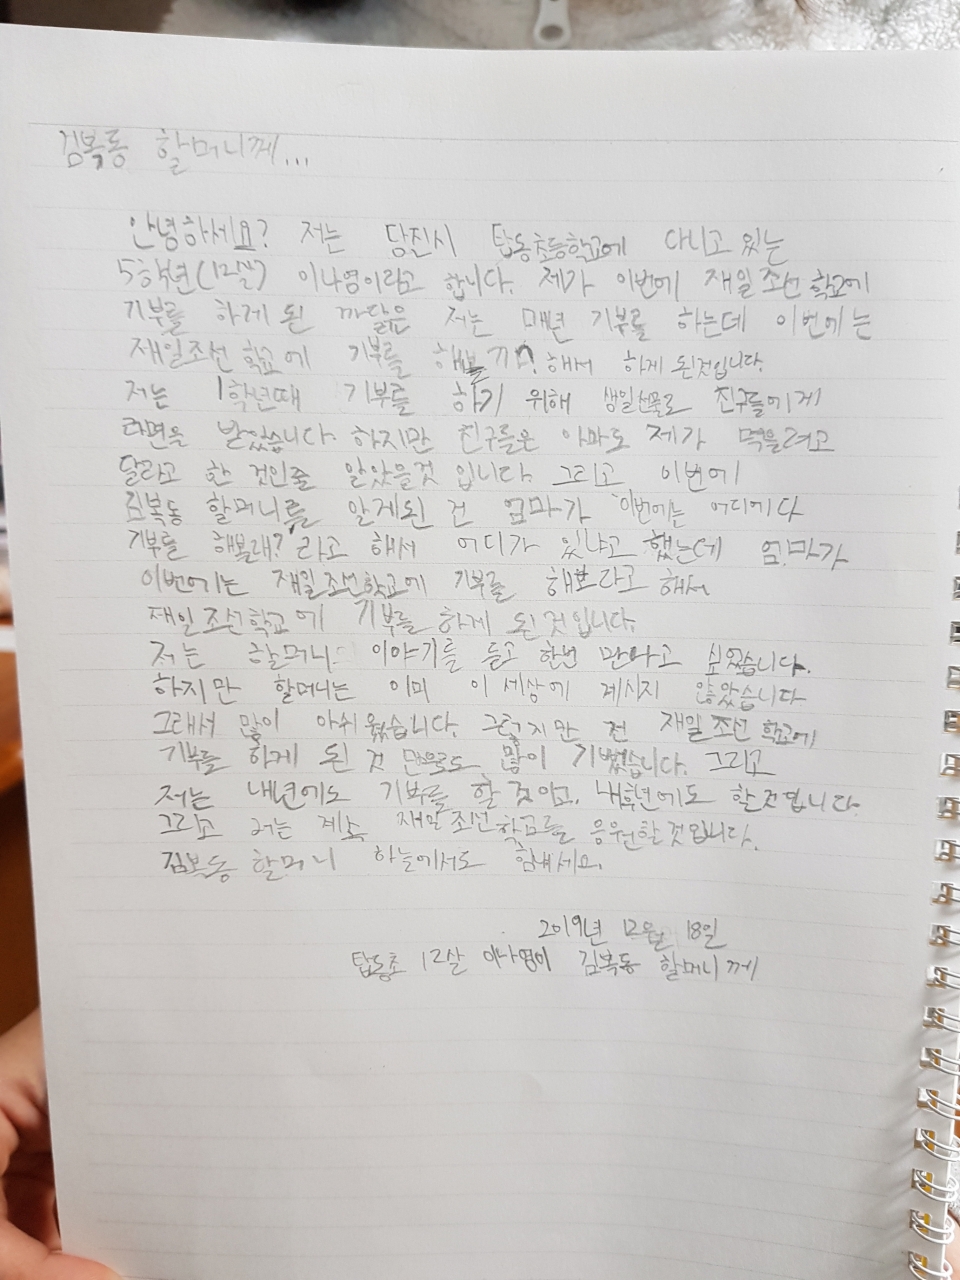 김복동 할머니께...
안녕하세요? 저는 당진시 탑동초등학교에 다니고 있는
5학년(12살) 이나영이라고 합니다. 제가 이번에 재일조선학교에
기부를 하게 된 까닭은 저는 매년 기부를 하는데 이번에는
재일조선학교에 기부를 해볼까? 해서 하게 된것입니다.
저는 1학년때 기부를 하기 위해 생일선물로 친구들에게
라면을 받았습니다. 하지만 친구들은 아마도 제가 먹을려고
달라고 한 것인줄 알았을것 입니다. 그리고 이번에
김복동 할머니를 알게된 건 엄마가 이번에는 어디에다
기부를 해볼래? 라고 해서 어디가 있냐고 했는데 엄마가
이번에는 재일조선학교에 기부를 해보라고 해서
재일조선학교에 기부를 하게 된것입니다.
저는 할머니 이야기를 듣고 한번 만나고 싶었습니다.
하지만 할머니는 이미 이 세상에 계시지 않았습니다
그래서 많이 아쉬웠습니다. 그렇지만 전 재일조선학교에
기부를 하게 된 것 만으로도 많이 기뻤습니다. 그리고
저는 내년에도 기부를 할 것이고, 내후년에도 할것입니다.
그리고 저는 계속 재일조선학교를 응원할것입니다.
김복동 할머니 하늘에서도 힘내세요.
2019년 12월 18일
탑동초 12살 이나영이 김복동 할머니께